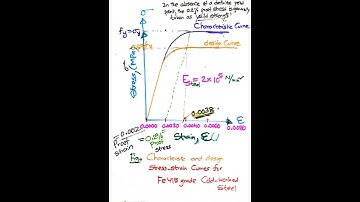 In the absence of a definite yield
point, the 0.2% proof stress is generally
taken as yield strength.
Characteristic Curve
design Curve
Stress, (MPa)
E Steel = 2×10⁵ N/mm²
0.0038
ε
0.0000 0.0020 0.0040 0.0060 0.0080
= 0.002
Proof
strain
= 0.2%
Proof
stress
Strain, ε
Fig. Characteristic and design
Stress-strain Curves for
Fe 415 grade Cold-worked
Steel